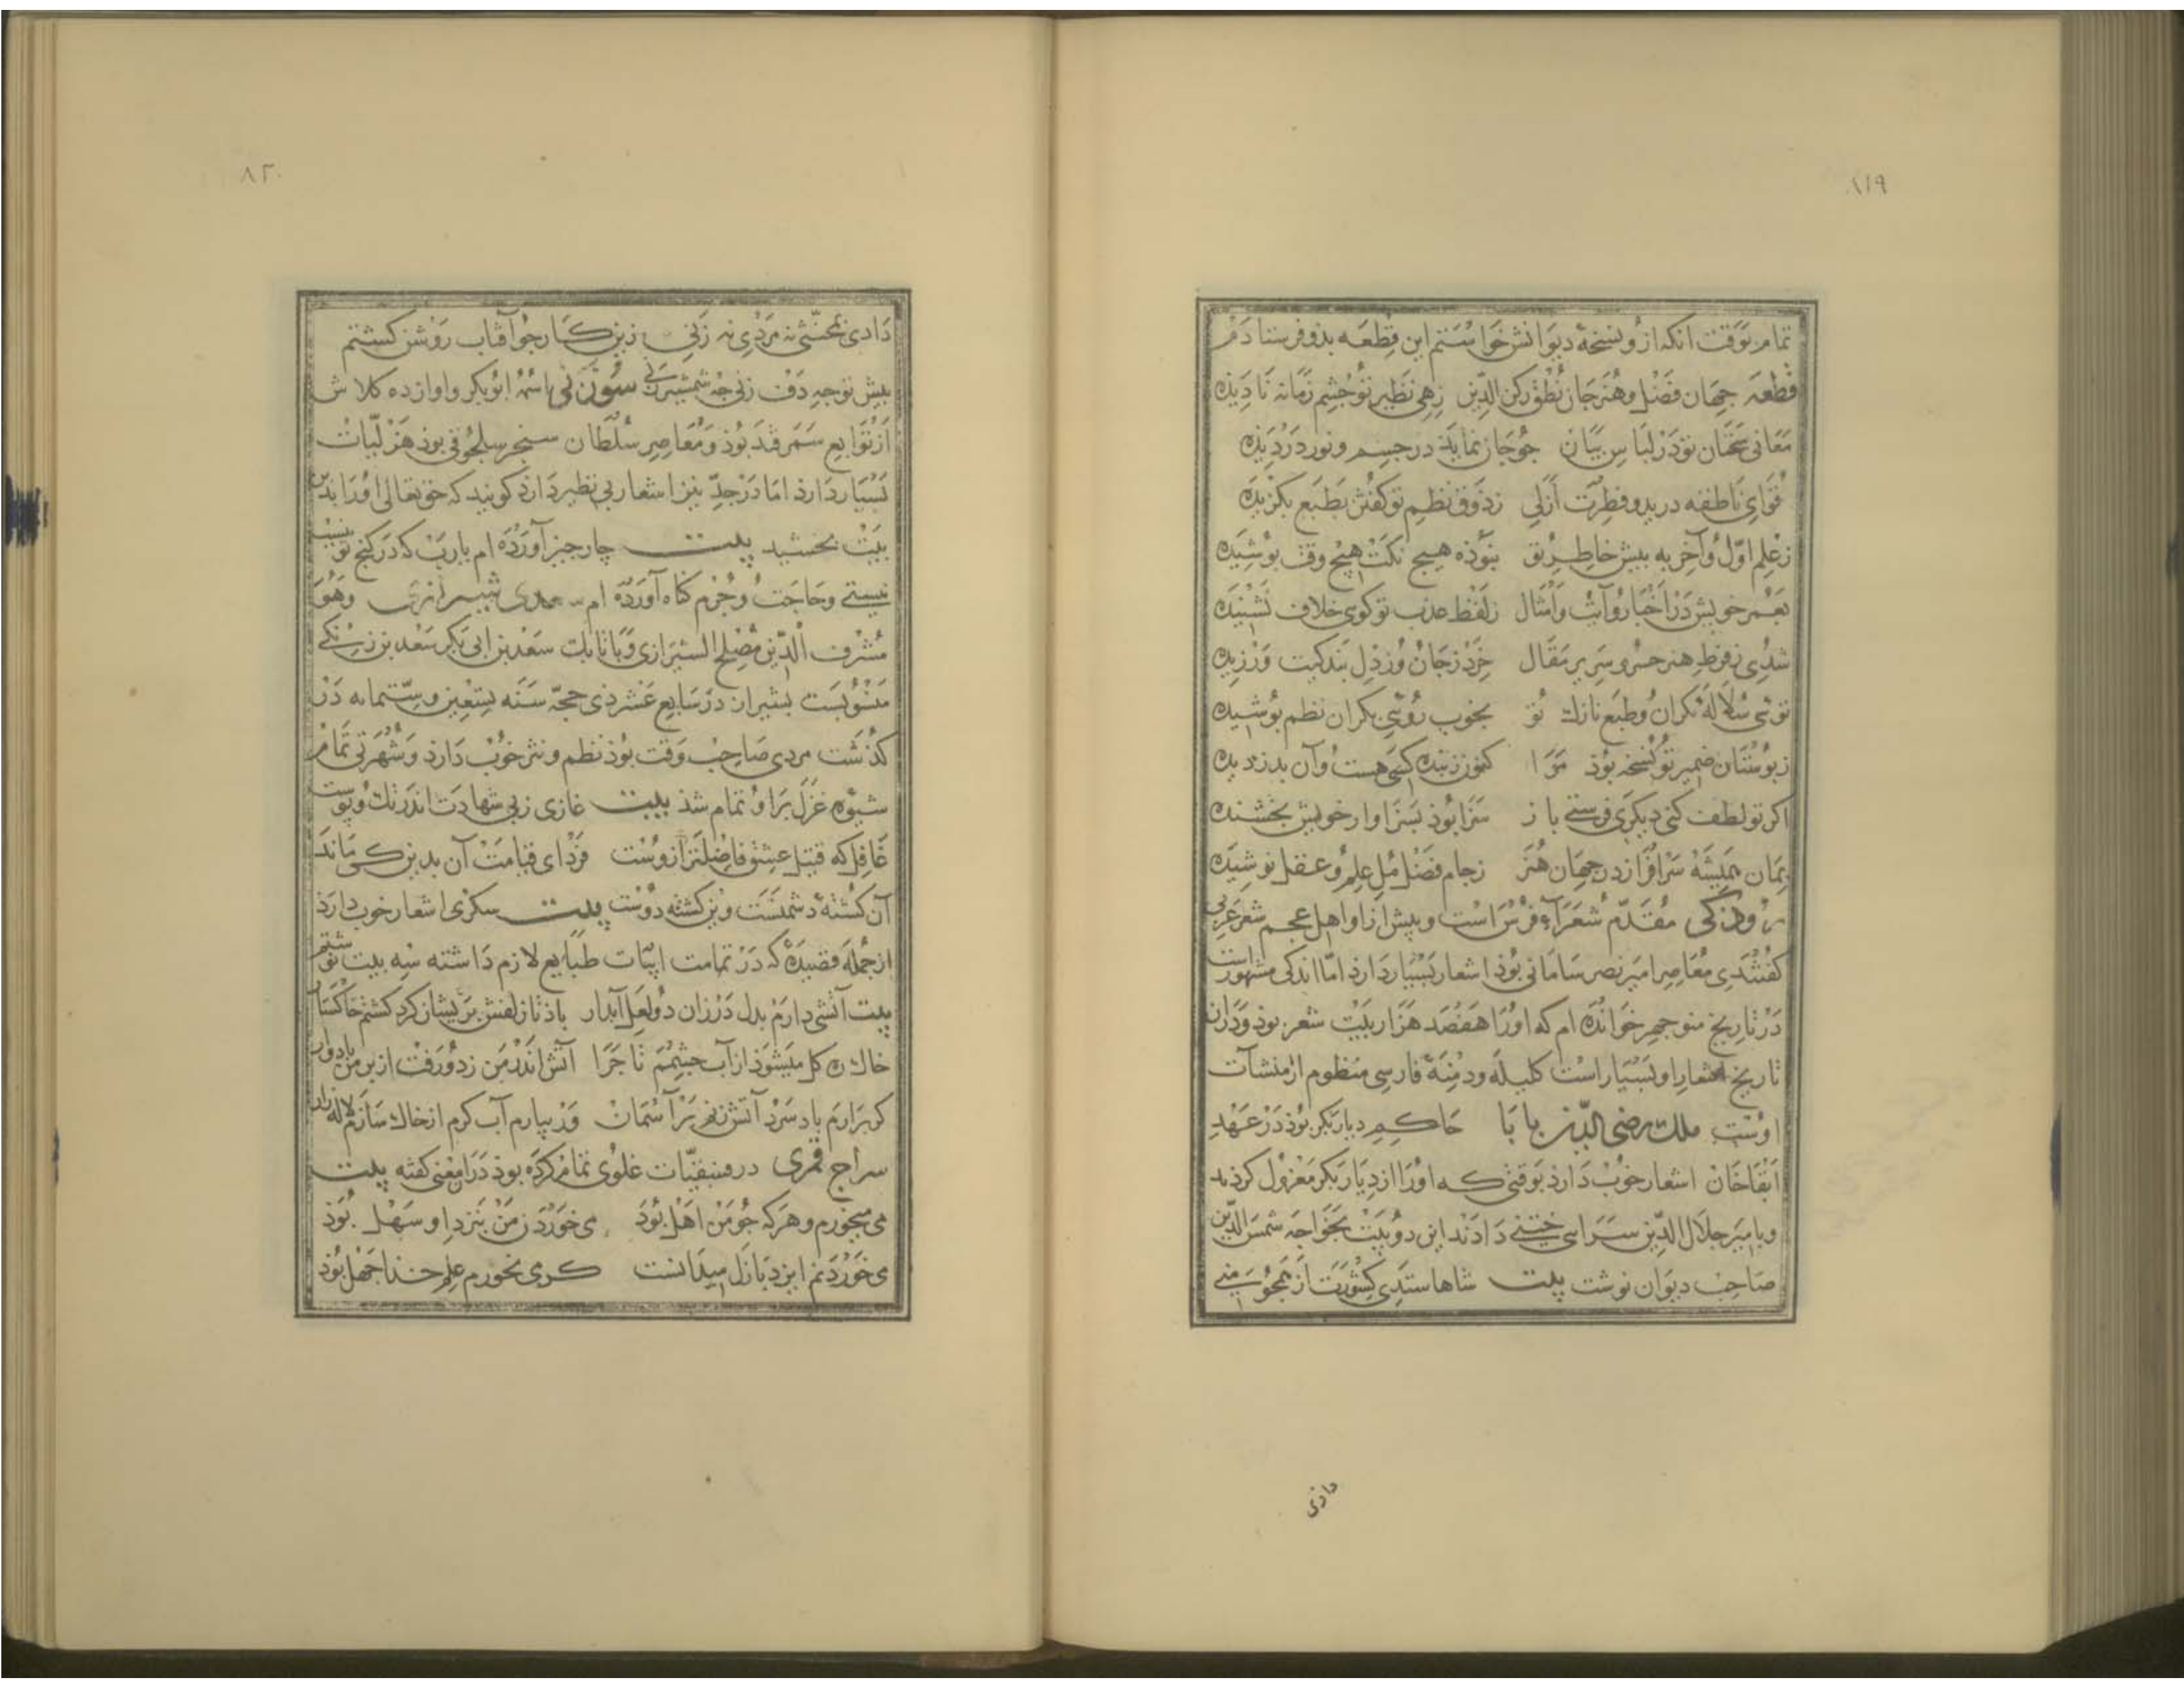 ۸۱۹
تمام بوقت انکه ازو نسخهٔ دیوانش خواستم این قطعه بدو فرستادم
قطعه جهان فضل و هنر جان نطق رکن الدین زهی نظیر تو چشم زمانه نادیده
معانی سخنان تو در لباس بیان چو جان نماید در جسم و نور در دیده
قوای ناطقه در بدو فطرت ازلی ز ذوق نظم تو کفتن بطبع بکزیده
ز علم اول و آخر به پیش خاطر تو نبوذه هیچ نکت هیچ وقت پوشیده
بعمر خویش در اخبار و آیت و امثال ز لفظ عذب تو کوی خلاف نشنیده
شدی ز فرط هنر خسرو سریر مقال خرد ز جان و ز دل بندکیت ورزیده
توئی سلاله بکران و طبع نازک تو بخوب روئی بکران نظم پوشیده
ز بوستان ضمیر تو نسخه بوذ مرا کنون ز بنده کسی هست و آن بدزدیده
اکر تو لطف کنی دیکری فرستی باز سزا بوذ بسزاوار خویش بخشنده
بمان همیشه سرافراز در جهان هنر ز جام فضل مل علم و عقل نوشیده
روذکی مقدم شعراء فرس است و پیش از او اهل عجم شعر عربی
کفتندی معاصر امیر نصر سامانی بوذ اشعار بسیار دارذ اما اندکی مشهور است
در تاریخ منوجهر خوانده ام که اورا هفصد هزار بیت شعر بوذ و دران
تاریخ اشعار او بسیار است کلیله و دمنه فارسی منظوم از منشآت
اوست ملک رضی الدین بابا حاکم دیار بکر بوذ در عهد
ابقاخان اشعار خوب دارذ بوقتی که اورا از دیار بکر معزول کردند
و بامیر جلال الدین سرای ختنی دادند این دو بیت بخواجه شمس الدین
صاحب دیوان نوشت بیت شاها ستدی کشورت از همچو منی
دادی
۸۲۰
دادی بمخنثی نه مردی نه زنی زین کار چو آفتاب روشن کشتم
پیش تو چه دف زنی چه شمشیر زنی سوزنی اسمه ابوبکر و اوازده کلاش
از توابع سمرقند بوذ و معاصر سلطان سنجر سلجوقی بوذ هزلیات
بسیار دارذ اما در جد نیز اشعار بی نظیر دارذ کویند که حق تعالی اورا بدین
بیت بخشید بیت چار چیز آورده ام یارب که در کنج تو نیست
نیستی و حاجت و جرم کناه آورده ام سعدی شیرازی وهو
مشرف الدین مصلح الشیرازی و باتابک سعد بن ابی بکر سعد بن زنکی
منسوبست بشیراز در سابع عشر ذی حجه سنه تسعین و ستمایه در
کذشت مردی صاحب وقت بوذ نظم و نثر خوب دارذ و شهرتی تمام
شیوه غزل بر او تمام شذ بیت غازی ز پی شهادت اندر تک و پوست
غافل که قتیل عشق فاضلتر ازوست فردای قیامت آن بدین کی ماند
آن کشته دشمنست وین کشته دوست بیت سکزی اشعار خوب دارذ
از جمله قصیده که در تمامت ابیات طبایع لازم داشته سه بیت نوشتم
بیت آتشی دارم بدل در زان دو لعل آبدار باذ تا زلفش پریشان کرد کشتم خاکسار
خاک ره کل میشوذ از آب چشمم تا جرا آتش اندر من زد و رفت از بر من بادوار
کر برارم باد سرد آتش زنم بر آسمان ور ببارم آب کرم از خاک سازم لاله زار
سراج قمری در فسقیات غلوی تمام کرده بوذ در این معنی کفته بیت
می میخورم و هر که چو من اهل بوذ می خوردن من بنزد او سهل بوذ
می خوردنم ایزد بازل میدانست کر می نخورم علم خذا جهل بوذ